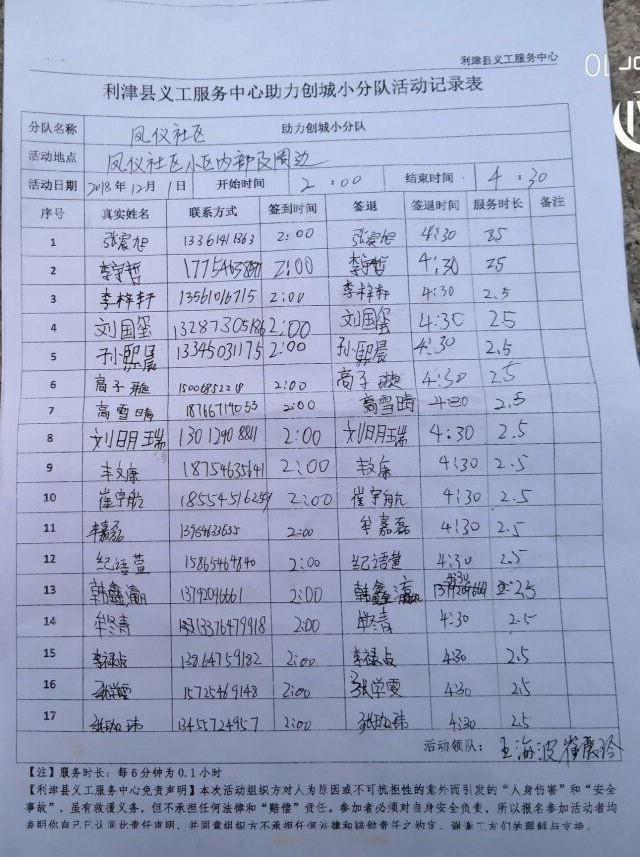 利津县义工服务中心
利津县义工服务中心助力创城小分队活动记录表
分队名称 凤仪社区 助力创城小分队
活动地点 凤仪社区小区内部及周边
活动日期 2018年12月1日 开始时间 2:00 结束时间 4:30
序号 真实姓名 联系方式 签到时间 签退 签退时间 服务时长 备注
1 张宸旭 2:00 张宸旭 4:30 25
2 李宇哲 2:00 李宇哲 4:30 25
3 李梓轩 13561016715 2:00 李梓轩 4:30 2.5
4 刘国玺 13287305186 2:00 刘国玺 4:30 25
5 孙熙晨 13345031175 2:00 孙熙晨 4:30 2.5
6 高子璇 15006852228 2:00 高子璇 4:30 25
7 高雪晴 18766714053 2:00 高雪晴 4:30 2.5
8 刘明瑞 13012908811 2:00 刘明瑞 4:30 2.5
9 18754635641 2:00 4:30 2.5
10 崔宇航 2:00 崔宇航 4:30 2.5
11 13954633635 2:00 牟嘉磊 4:30 2.5
12 纪语萱 15865464840 2:00 纪语萱 4:30 2.5
13 韩鑫瀛 13792096661 2:00 韩鑫瀛 4:30 2.5
14 牟冬青 13376479918 2:00 牟冬青 4:30 2.5
15 李禄贞 13964759182 2:00 李禄贞 4:30 2.5
16 15725469148 2:00 张学雯 4:30 2.5
17 13455724957 2:00 4:30 2.5
活动领队： 王海波 崔爱玲
【注】服务时长：每6分钟为0.1小时
【利津县义工服务中心免责声明】本次活动组织方对人为原因或不可抗担性的意外而引发的“人身伤害”和“安全
事故”，虽有救援义务，但不承担任何法律和“赔偿”责任。参加者必须对自身安全负责，所以报名参加活动者均
表明你自己已认同此责任声明，并同意组织方不承担任何法律和赔偿责任之约定。谢谢义工们的理解与支持。